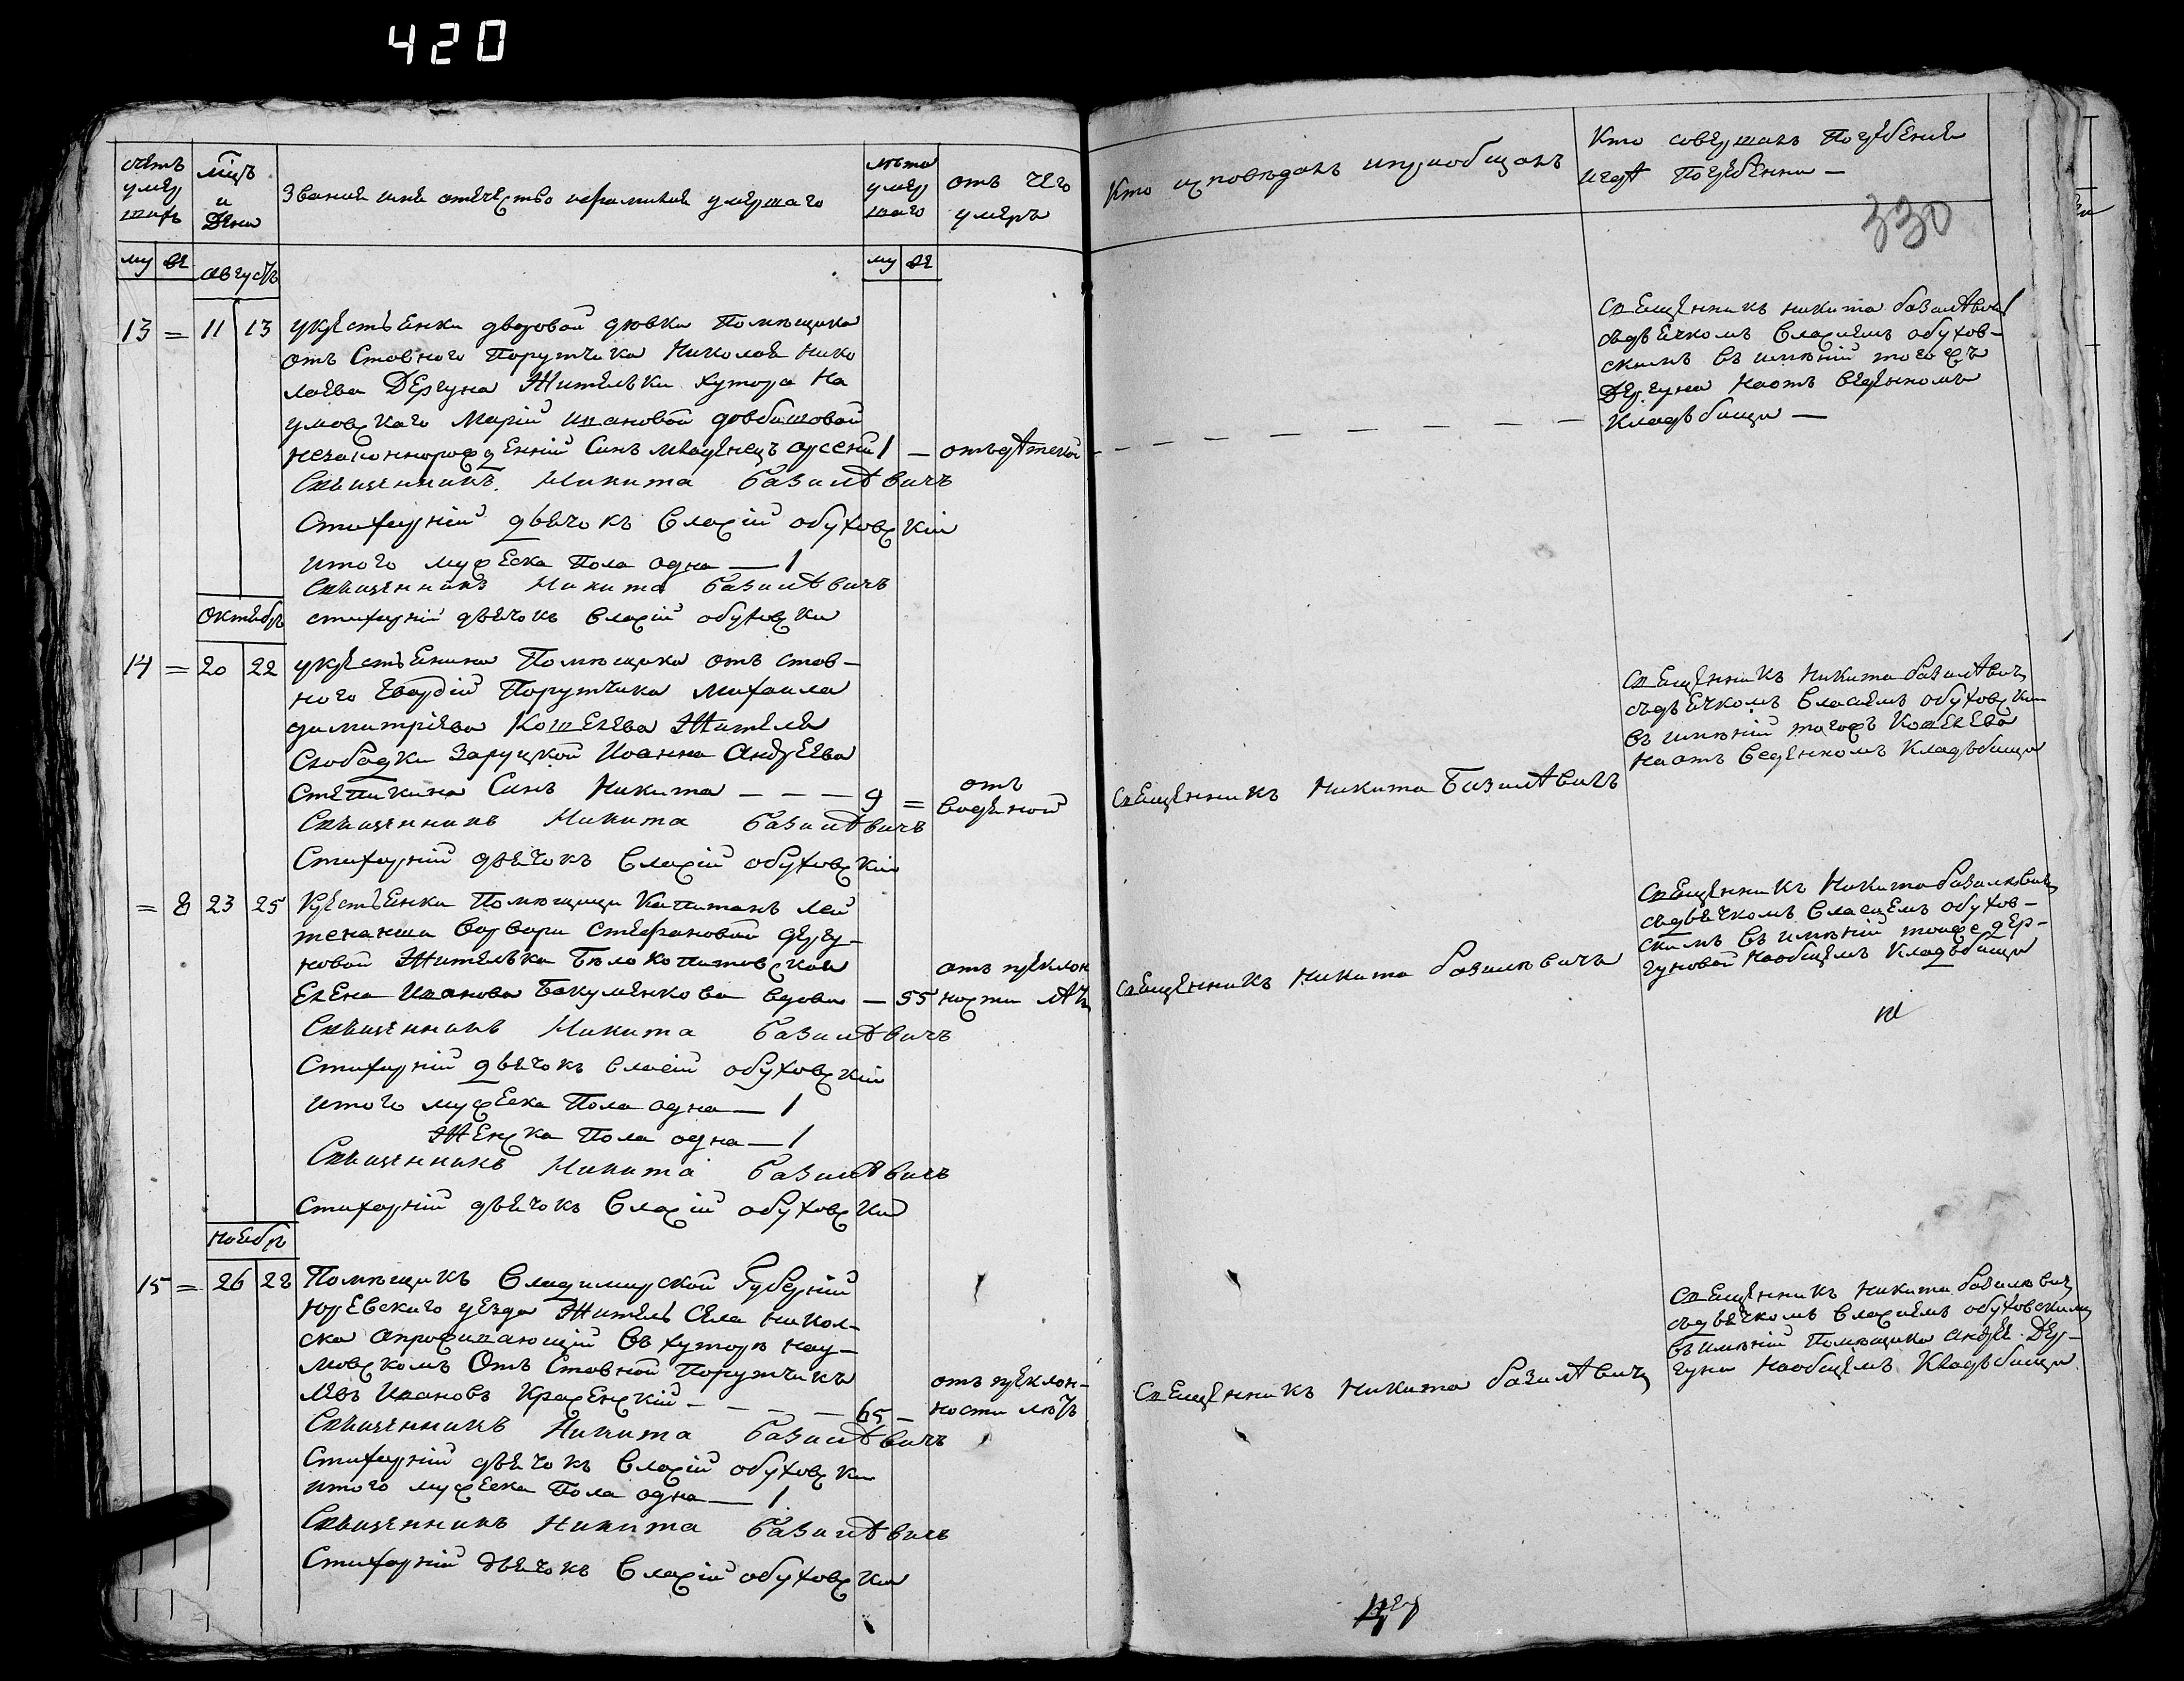 420
счетъ умер шихъ
мцъ и дени
Звание имя отечество ифамилия умершаго
лѣта умер шаго
отъ чего умеръ
Кто исповѣдалъ иприобщалъ
Кто совершалъ Погребение игдѣ Погребенни —
330
му же
августъ
му же
13 = 11 13 укрестьенки дворовой девки Помещика
отъ Ставного Порутчика Николая Нико
лаева Дергуна Жителки хутора На
умовскаго Марiи Ивановой довбишовой
незаконнорожденнiй Синъ младенецъ арсений 1 — отъ
Священникъ Никита Базилѣвичъ
Стихарнiй дьячокъ Власiй обуховскiй
итого мужеска Пола одна — 1
Священникъ Никита Базилѣвичъ
стихарнiй дьячокъ Власiй обуховски
Священникъ никита базилѣвич
съдьячкомъ Власиемъ обухов-
скимъ въ имѣнiй тогожъ
Дергуна Наотъ веденномъ
Кладъбищи —
Октябрь
14 = 20 22 укрестьенина Помещика отъ став-
ного Гвардiй Порутчика Михаила
димитриева Кошелева Жителя
Слободки Заруцкой Иоанна Андреева
Степичкина Синъ Никита — — — 9 = отъ водяной
Священникъ Никита Базилѣвичъ
Стихарнiй дьячокъ Власiй обуховскiй
Священникъ Никита Базилѣвичъ
Священникъ Никита Базилѣвич
съдьячкомъ Власиемъ обуховским
въ имѣнiй тогожъ Кошелева
Наотъ веденномъ Кладъбищи
= 8 23 25 Крестьенка Помещици Капитанъ Лей
тенанша Варвари Стефановой дергу-
новой Жителька Бѣлокопитовская
Елена Иванова Бакуменкова вдова — 55 отъ преклон ности лѣт
Священникъ Никита Базилѣвичъ
Стихарнiй дьячокъ Власiй обуховскiй
итого мужеска Пола одна — 1
Женска Пола одна — 1
Священникъ Никита Базилѣвичъ
Стихарнiй дьячокъ Власiй обуховский
Священникъ Никита базилевичъ
Священникъ Никита базилевич
съдьячкомъ Власиемъ обухов-
скимъ въ имѣнiй тоиже дер-
гуновой Наобщемъ Кладъбищи
Ноябрь
15 = 26 28 Помѣщикъ Владимирской Губернiй
Юревского уезда Житель Села Никол-
ска апроживающiй въ хуторѣ нау-
мовскомъ Отъ Ставной Порутчикъ
Левъ Ивановъ Красенскiй — — — 65 — отъ преклон- ности лѣтъ
Священникъ Никита Базилѣвичъ
Стихарнiй дьячокъ Власiй обуховски
итого мужеска Пола одна — 1
Священникъ Никита Базилѣвичъ
Стихарнiй дьячокъ Власiй обуховски
Священникъ Никита базилѣвич
Священникъ Никита базилевич
съдьячкомъ Власиемъ обуховскимъ
въ имѣнiй Помѣщика андрея Дер-
гуна Наобщемъ Кладъбищи